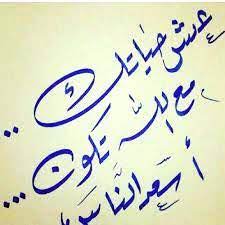 عش حياتك ..
مع الله تكون ...
أسعد الناس